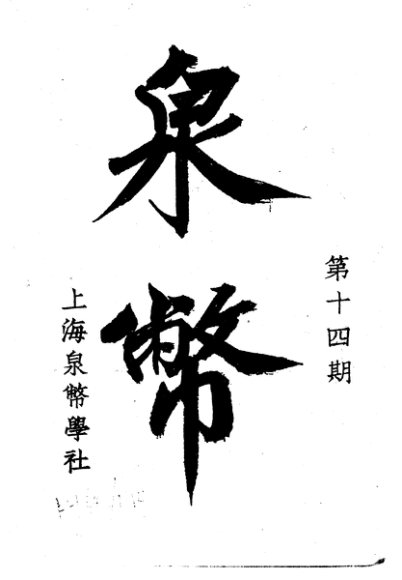 第十四期
泉幣
上海泉幣學社